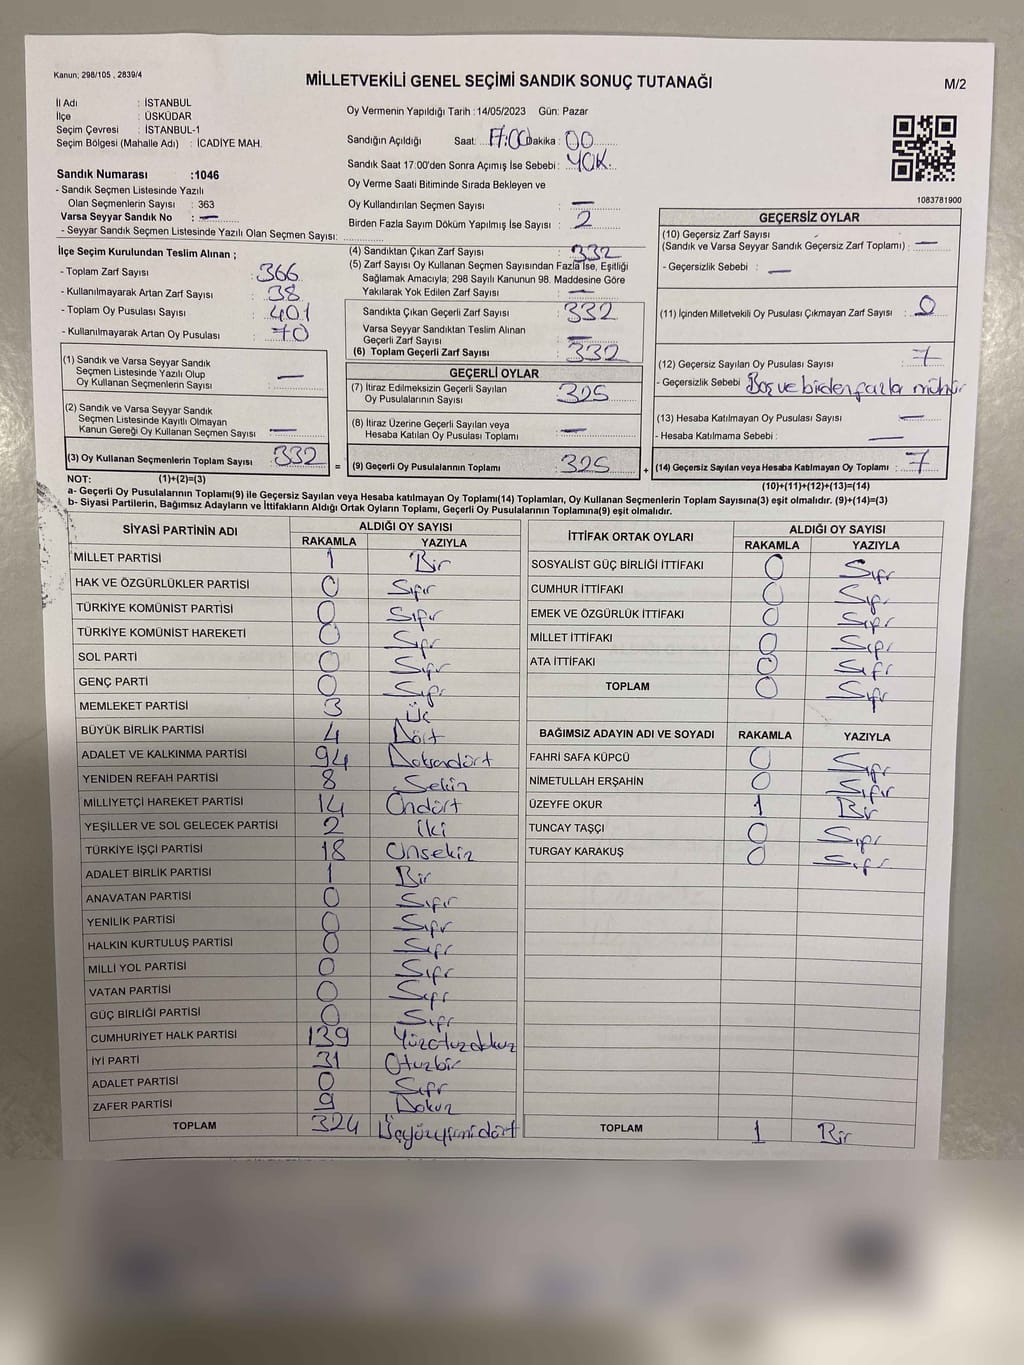 Kanun; 298/105 , 2839/4
MİLLETVEKİLİ GENEL SEÇİMİ SANDIK SONUÇ TUTANAĞI
M/2
İl Adı : İSTANBUL
İlçe : ÜSKÜDAR
Seçim Çevresi : İSTANBUL-1
Seçim Bölgesi (Mahalle Adı) : İCADİYE MAH.
Oy Vermenin Yapıldığı Tarih : 14/05/2023 Gün: Pazar
Sandığın Açıldığı Saat: 17:00 Dakika : 00
Sandık Saat 17:00'den Sonra Açımış İse Sebebi : YOK.
Oy Verme Saati Bitiminde Sırada Bekleyen ve
Oy Kullandırılan Seçmen Sayısı : —
Birden Fazla Sayım Döküm Yapılmış İse Sayısı : 2
Sandık Numarası :1046
- Sandık Seçmen Listesinde Yazılı
Olan Seçmenlerin Sayısı : 363
Varsa Seyyar Sandık No : —
- Seyyar Sandık Seçmen Listesinde Yazılı Olan Seçmen Sayısı:
1083781900
İlçe Seçim Kurulundan Teslim Alınan ;
- Toplam Zarf Sayısı : 366
- Kullanılmayarak Artan Zarf Sayısı : 38
- Toplam Oy Pusulası Sayısı : 401
- Kullanılmayarak Artan Oy Pusulası : 70
(1) Sandık ve Varsa Seyyar Sandık
Seçmen Listesinde Yazılı Olup
Oy Kullanan Seçmenlerin Sayısı : —
(2) Sandık ve Varsa Seyyar Sandık
Seçmen Listesinde Kayıtlı Olmayan
Kanun Gereği Oy Kullanan Seçmen Sayısı : —
(3) Oy Kullanan Seçmenlerin Toplam Sayısı : 332
(4) Sandıktan Çıkan Zarf Sayısı : 332
(5) Zarf Sayısı Oy Kullanan Seçmen Sayısından Fazla İse, Eşitliği
Sağlamak Amacıyla; 298 Sayılı Kanunun 98. Maddesine Göre
Yakılarak Yok Edilen Zarf Sayısı : —
Sandıkta Çıkan Geçerli Zarf Sayısı : 332
Varsa Seyyar Sandıktan Teslim Alınan
Geçerli Zarf Sayısı : —
(6) Toplam Geçerli Zarf Sayısı : 332
GEÇERLİ OYLAR
(7) İtiraz Edilmeksizin Geçerli Sayılan
Oy Pusulalarının Sayısı : 325
(8) İtiraz Üzerine Geçerli Sayılan veya
Hesaba Katılan Oy Pusulası Toplamı : —
= (9) Geçerli Oy Pusulalarının Toplamı : 325
GEÇERSİZ OYLAR
(10) Geçersiz Zarf Sayısı
(Sandık ve Varsa Seyyar Sandık Geçersiz Zarf Toplamı) : —
- Geçersizlik Sebebi : —
(11) İçinden Milletvekili Oy Pusulası Çıkmayan Zarf Sayısı : 0
(12) Geçersiz Sayılan Oy Pusulası Sayısı : 7
- Geçersizlik Sebebi : Boş ve birden fazla mühür
(13) Hesaba Katılmayan Oy Pusulası Sayısı : —
- Hesaba Katılmama Sebebi : —
+ (14) Geçersiz Sayılan veya Hesaba Katılmayan Oy Toplamı : 7
NOT: (1)+(2)=(3)
(10)+(11)+(12)+(13)=(14)
a- Geçerli Oy Pusulalarının Toplamı(9) ile Geçersiz Sayılan veya Hesaba katılmayan Oy Toplamı(14) Toplamları, Oy Kullanan Seçmenlerin Toplam Sayısına(3) eşit olmalıdır. (9)+(14)=(3)
b- Siyasi Partilerin, Bağımsız Adayların ve İttifakların Aldığı Ortak Oyların Toplamı, Geçerli Oy Pusulalarının Toplamına(9) eşit olmalıdır.
SİYASİ PARTİNİN ADI ALDIĞI OY SAYISI
RAKAMLA YAZIYLA
MİLLET PARTİSİ 1 Bir
HAK VE ÖZGÜRLÜKLER PARTİSİ 0 Sıfır
TÜRKİYE KOMÜNİST PARTİSİ 0 Sıfır
TÜRKİYE KOMÜNİST HAREKETİ 0 Sıfır
SOL PARTİ 0 Sıfır
GENÇ PARTİ 0 Sıfır
MEMLEKET PARTİSİ 3 Üç
BÜYÜK BİRLİK PARTİSİ 4 Dört
ADALET VE KALKINMA PARTİSİ 94 Doksandört
YENİDEN REFAH PARTİSİ 8 Sekiz
MİLLİYETÇİ HAREKET PARTİSİ 14 Ondört
YEŞİLLER VE SOL GELECEK PARTİSİ 2 İki
TÜRKİYE İŞÇİ PARTİSİ 18 Onsekiz
ADALET BİRLİK PARTİSİ 1 Bir
ANAVATAN PARTİSİ 0 Sıfır
YENİLİK PARTİSİ 0 Sıfır
HALKIN KURTULUŞ PARTİSİ 0 Sıfır
MİLLİ YOL PARTİSİ 0 Sıfır
VATAN PARTİSİ 0 Sıfır
GÜÇ BİRLİĞİ PARTİSİ 0 Sıfır
CUMHURİYET HALK PARTİSİ 139 Yüzotuzdokuz
İYİ PARTİ 31 Otuzbir
ADALET PARTİSİ 0 Sıfır
ZAFER PARTİSİ 9 Dokuz
TOPLAM 324 Üçyüzyirmidört
İTTİFAK ORTAK OYLARI ALDIĞI OY SAYISI
RAKAMLA YAZIYLA
SOSYALİST GÜÇ BİRLİĞİ İTTİFAKI 0 Sıfır
CUMHUR İTTİFAKI 0 Sıfır
EMEK VE ÖZGÜRLÜK İTTİFAKI 0 Sıfır
MİLLET İTTİFAKI 0 Sıfır
ATA İTTİFAKI 0 Sıfır
TOPLAM 0 Sıfır
BAĞIMSIZ ADAYIN ADI VE SOYADI RAKAMLA YAZIYLA
FAHRİ SAFA KÜPCÜ 0 Sıfır
NİMETULLAH ERŞAHİN 0 Sıfır
ÜZEYFE OKUR 1 Bir
TUNCAY TAŞÇI 0 Sıfır
TURGAY KARAKUŞ 0 Sıfır
TOPLAM 1 Bir